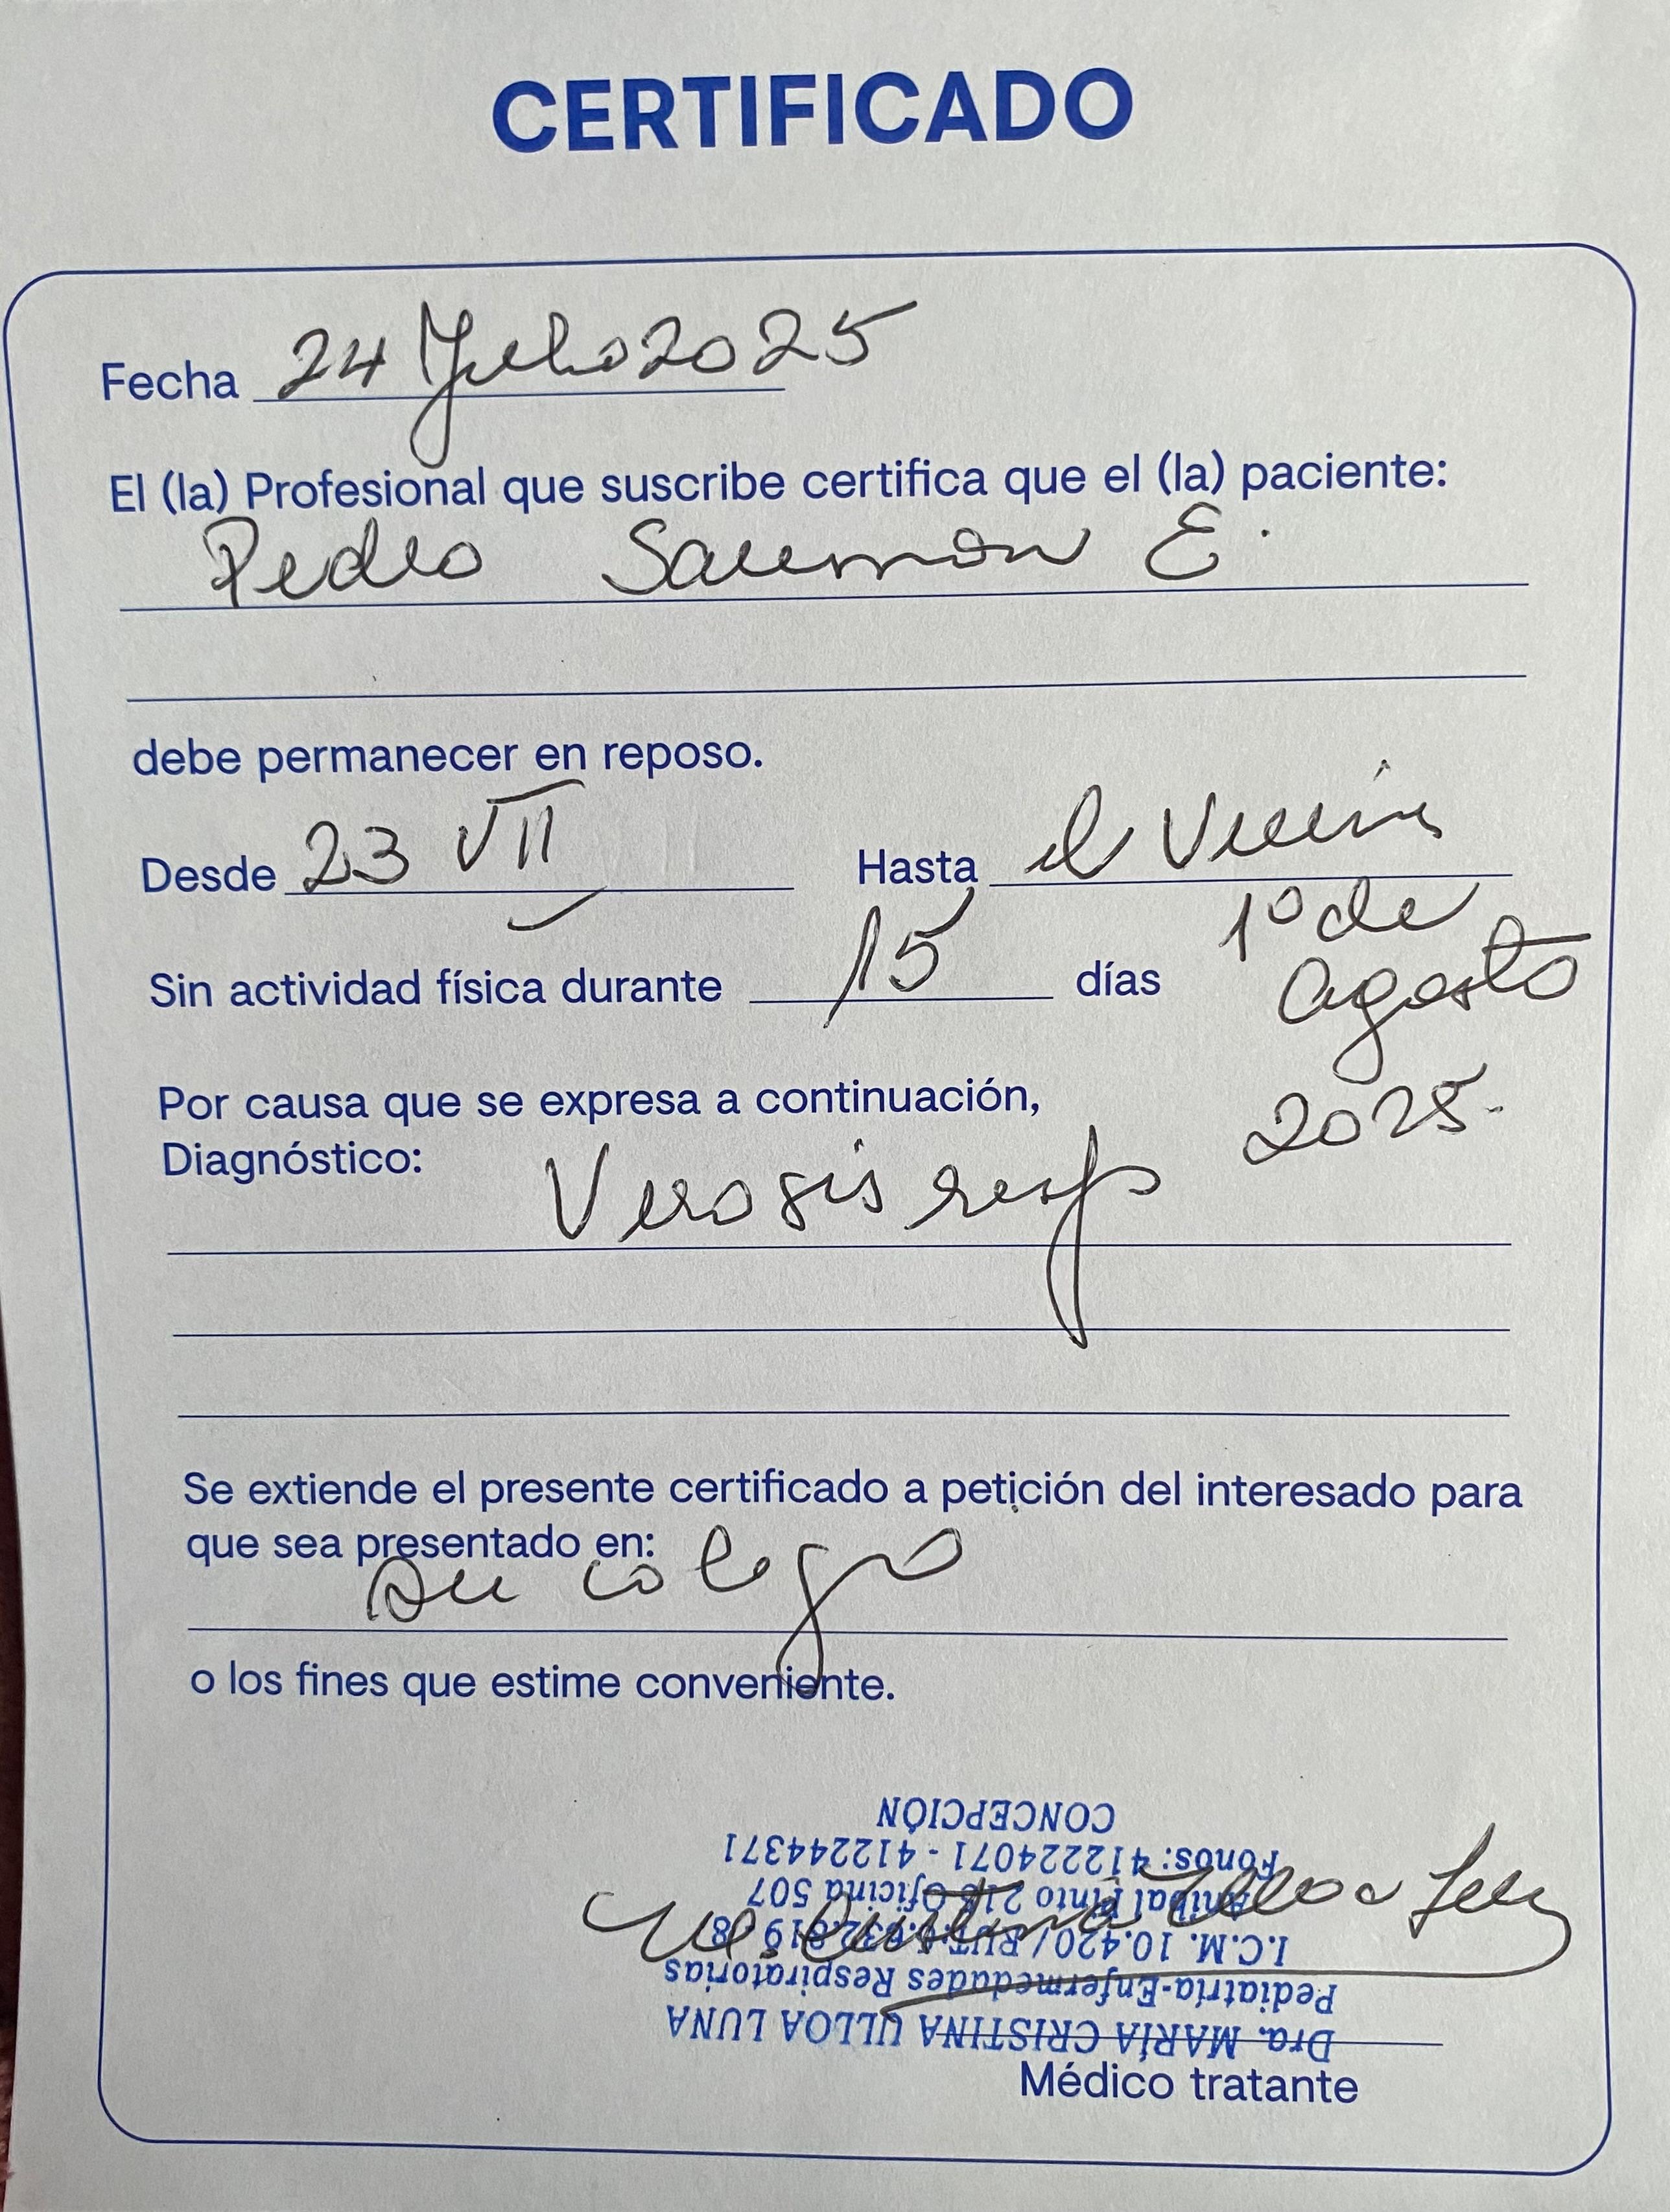 CERTIFICADO
Fecha 24 Julio 2025
El (la) Profesional que suscribe certifica que el (la) paciente:
Pedro E.
debe permanecer en reposo.
Desde 23 VII Hasta el Viernes
1º de
Agosto
2025.
Sin actividad física durante 15 días
Por causa que se expresa a continuación,
Diagnóstico:
Virosis resp
Se extiende el presente certificado a petición del interesado para
que sea presentado en:
su colegio
o los fines que estime conveniente.
Dra. MARÍA CRISTINA ULLOA LUNA
Pediatría-Enfermedades Respiratorias
I.C.M. 10.420 / RUT:
Aníbal Pinto 215 Oficina 507
Fonos: 412224071 - 412244371
CONCEPCIÓN
Médico tratante